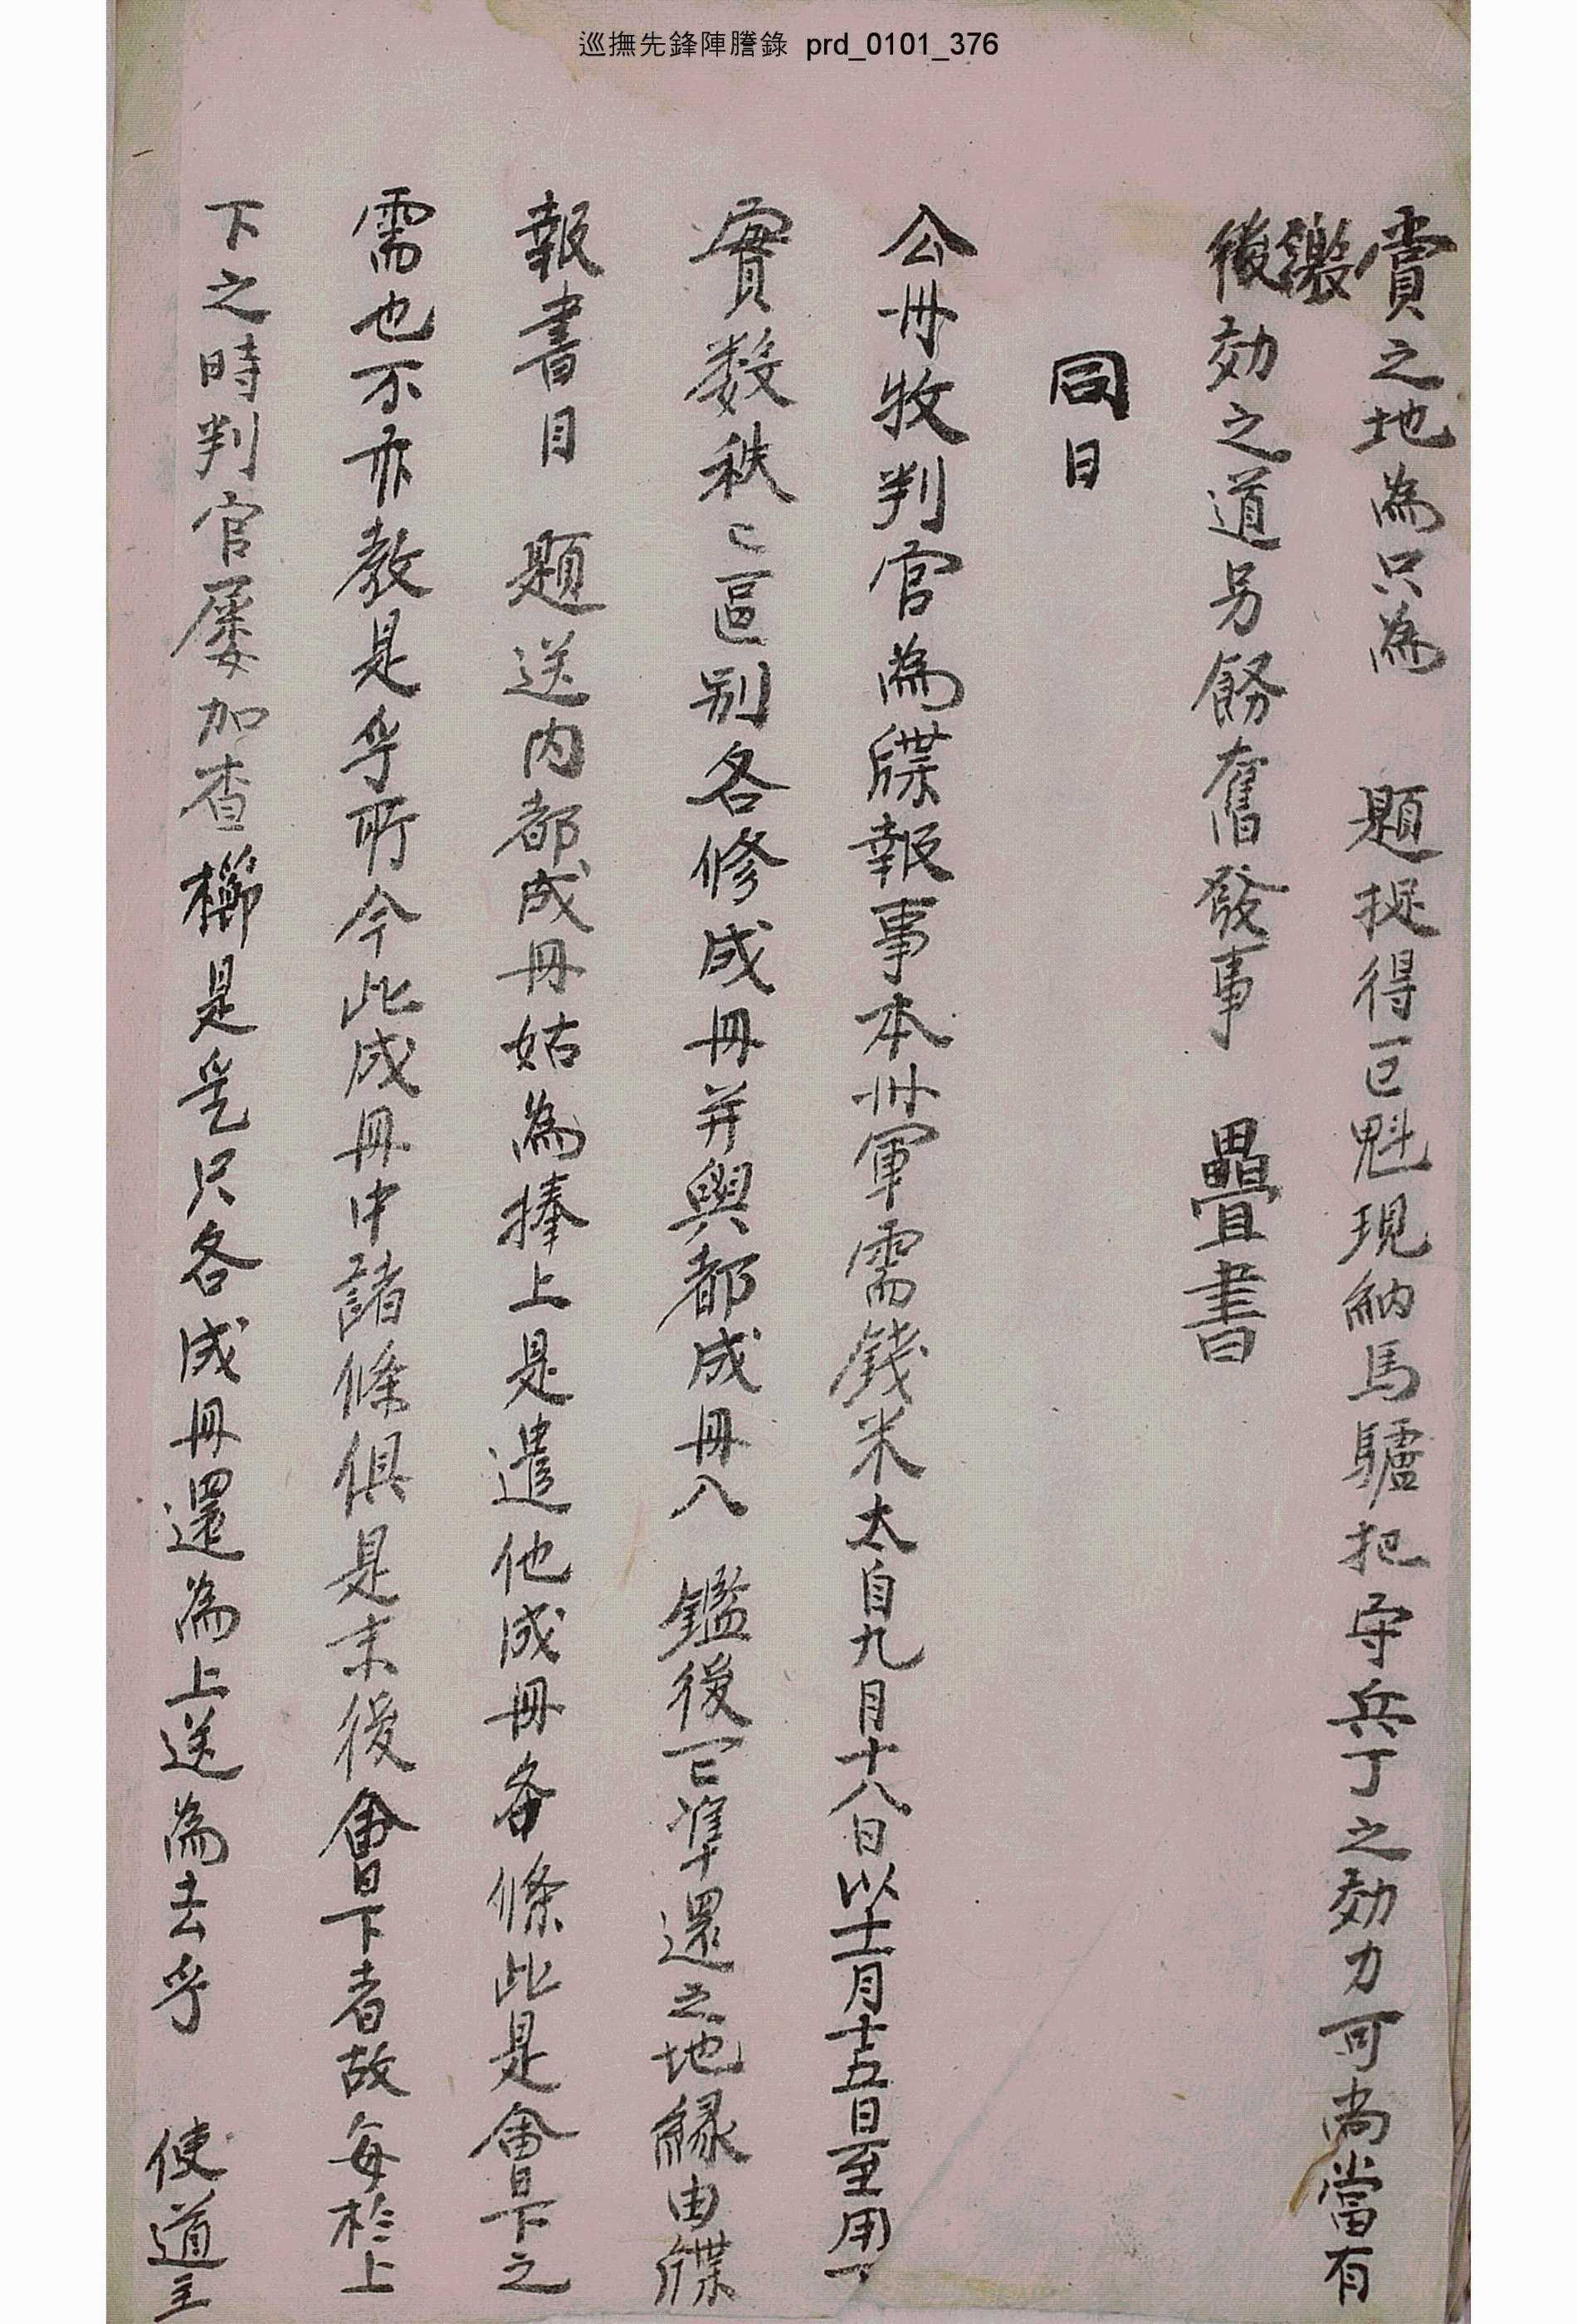 巡撫先鋒陣謄錄 prd_0101_376
賞之地為只為 題捉得巨魁現納馬驢把守兵丁之効力可尚當有
激
後効之道另飭奮發事 疊書
同日
公州牧判官為牒報事本州軍需錢米太自九月十八日以十一月十五日至用下
實数秩〻區別各修成冊并與都成冊八 鑑後一〻準還之地緣由牒
報書目 題送內都成冊姑為捧上是遣他成冊各條此是會下之
需也不亦教是乎所今此成冊中諸條俱是末後會下者故每於上
下之時判官屢加查櫛是乎旀只各成冊還為上送為去乎 使道主